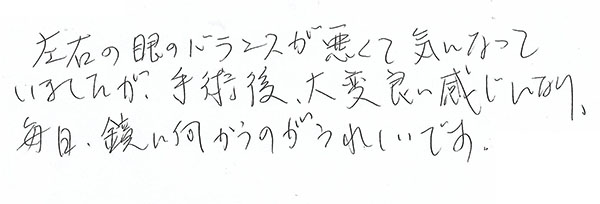 左右の眼のバランスが悪くて気になって
いましたが、手術後、大変良い感じになり、
毎日、鏡に向かうのがうれしいです。